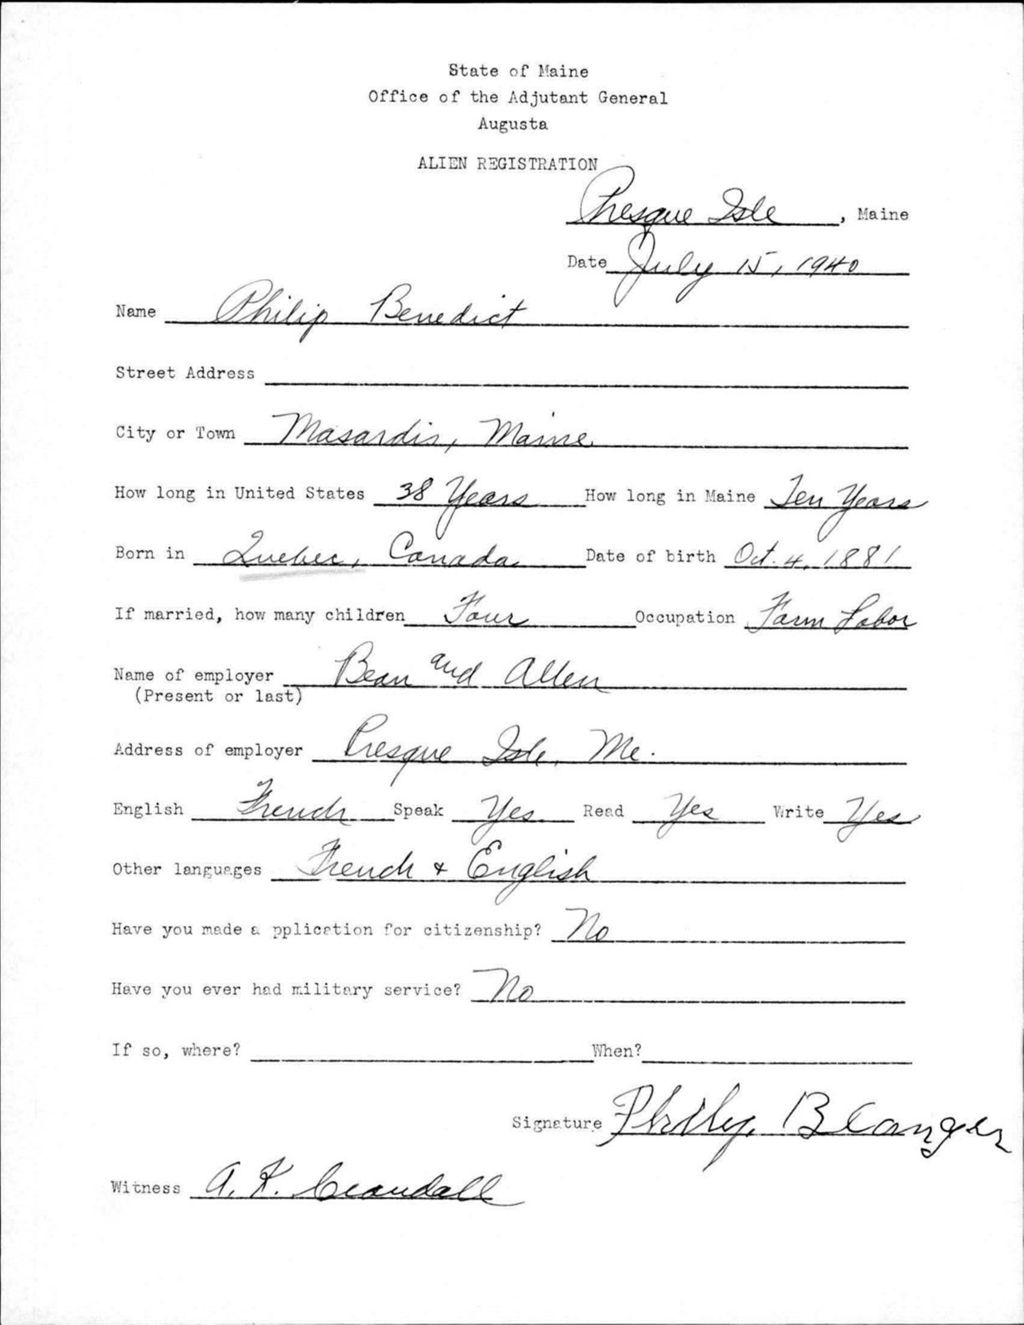 State of Maine
Office of the Adjutant General
Augusta
ALIEN REGISTRATION
Presque Isle, Maine
Date July 15, 1940
Name Philip Benedict
Street Address
City or Town Masardis, Maine.
How long in United States 38 Years How long in Maine Ten Years
Born in Quebec, Canada. Date of birth Oct. 4, 1881
If married, how many children Four Occupation Farm Labor
Name of employer Bean and Allen
(Present or last)
Address of employer Presque Isle, Me.
English French Speak Yes Read Yes Write Yes
Other languages French & English
Have you made a pplication for citizenship? No
Have you ever had military service? No
If so, where? When?
Signature Philip Blanger
Witness A. K. Crandall